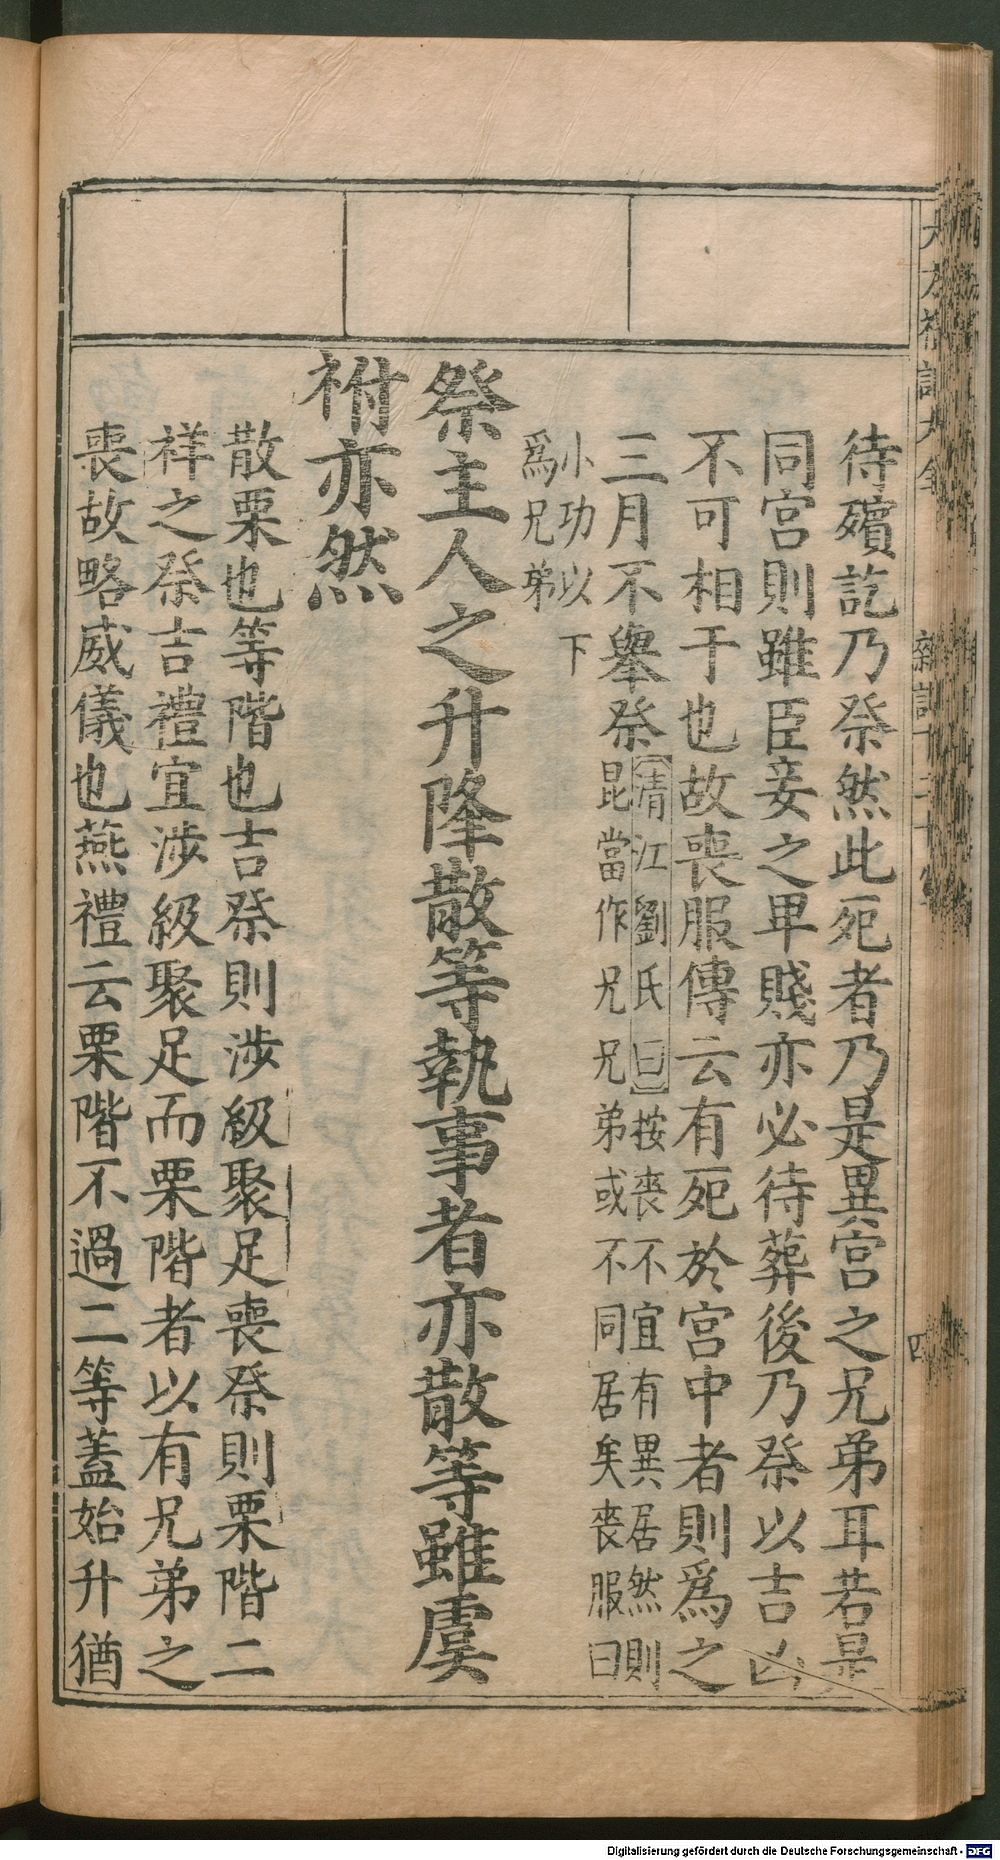 待殯訖乃祭然此死者乃是異宮之兄弟耳若是
同宮則雖臣妾之卑賤亦必待葬後乃祭以吉凶
不可相干也故喪服傳云有死於宮中者則爲之
三月不舉祭
清江劉氏曰按喪不宜有異居然則
昆當作兄兄弟或不同居矣喪服曰
小功以下
爲兄弟
祭主人之升降散等執事者亦散等雖虞
祔亦然
散栗也等階也吉祭則涉級聚足喪祭則栗階二
祥之祭吉禮宜涉級聚足而栗階者以有兄弟之
喪故略威儀也燕禮云栗階不過二等蓋始升猶
四
Digitalisierung gefördert durch die Deutsche Forschungsgemeinschaft - DFG